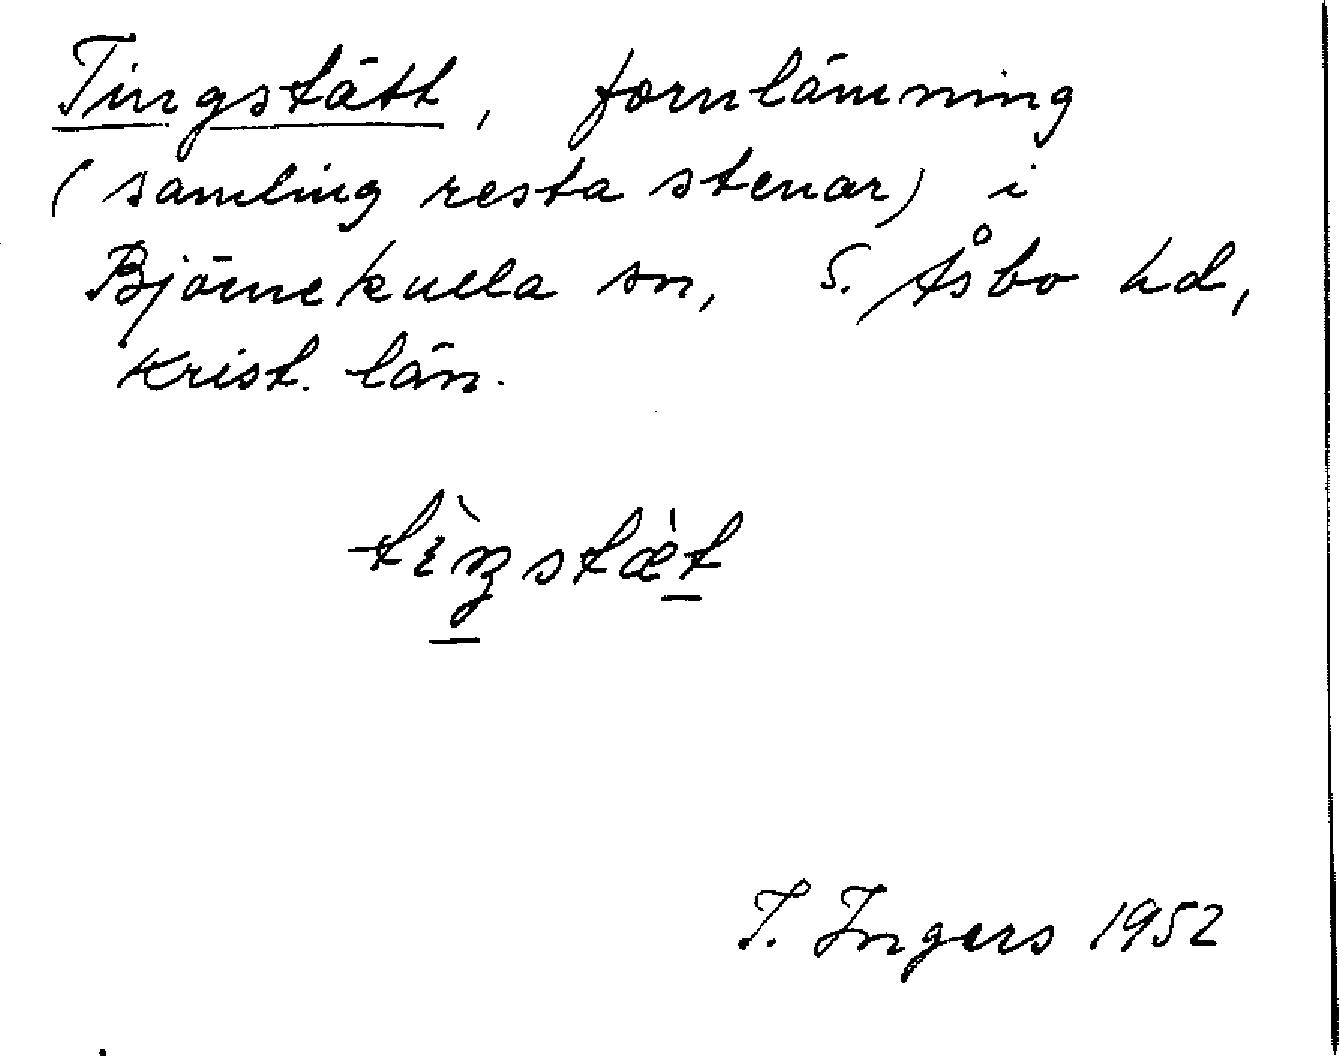 Tingstätt, fornlämning
(samling resta stenar) i
Björnekulla sn, S. Åsbo hd,
Krist. län.
tìŋstæ̀t
I. Ingers 1952